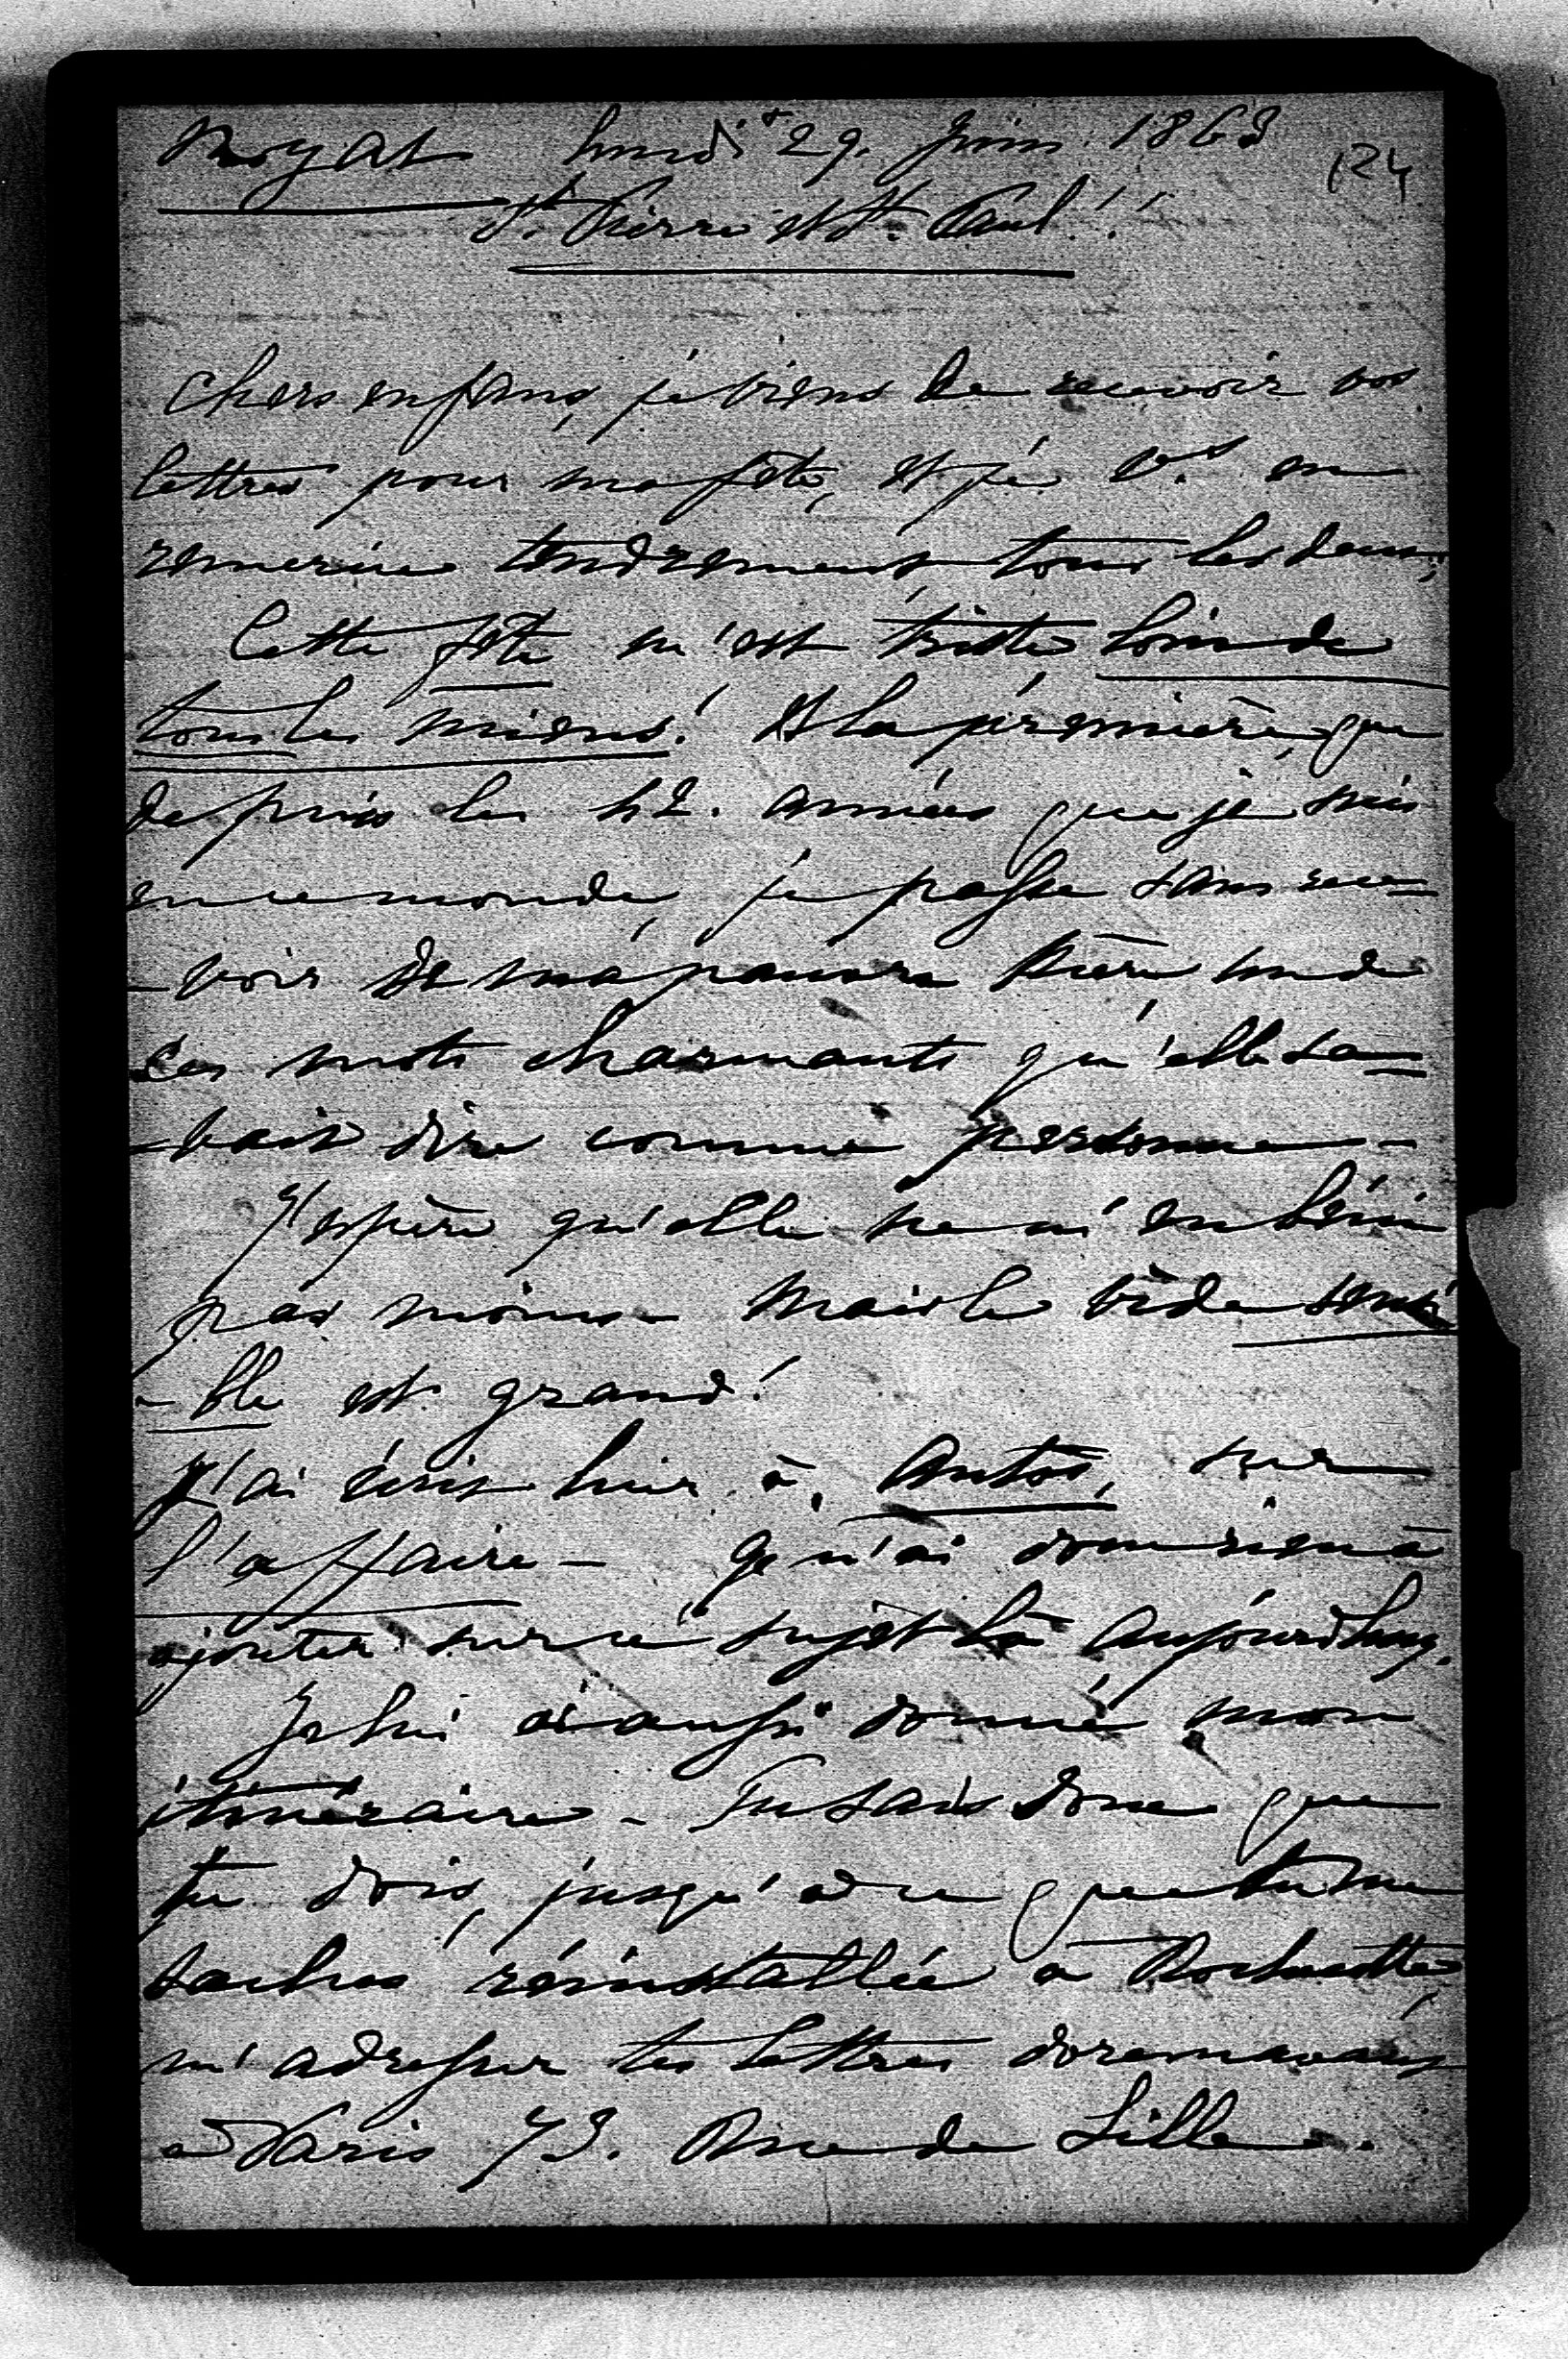 Royat lundi 29. Juin 1863
124
St. Pierre et St. Paul!!
Chers enfans, je viens de recevoir vos
lettres pour ma fête, et je vs. en
remercie tendrement tous les deux;
Cette fête m'est triste loin de
tous les miens! Et la première, que
depuis les 42. années que je suis
en ce monde, je passe sans rece-
-voir de ma pauvre Mère un de
ces mots charmants qu'elle sa-
-vait dire comme personne-
J'espère qu'elle ne m'en bénie
pas moins - Mais le vide sensi
-ble est grand!
J'ai écrit hier à Anton, sur
l'affaire - Je n'ai donc rien à
ajouter sur ce sujet là aujourdhuy.
Je lui ai aussi donné mon
itinéraire - Tu sais donc que
tu dois, jusqu'à ce que tu me
saches réinstallée à Rochecotte,
m'adresser tes lettres dorennavant
à Paris 73. Rue de Lille.